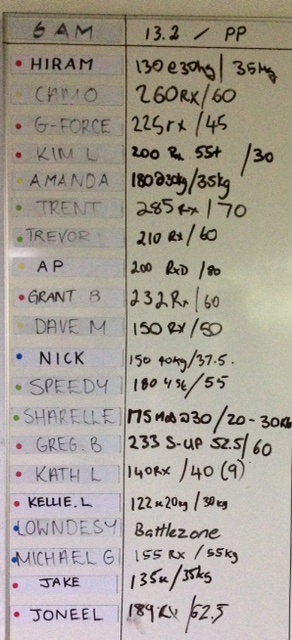 6 AM 13.2 / PP
HIRAM 130 @ 30kg / 35kg
CAMO 260 RX / 60
G-FORCE 225 rx / 45
KIM L 200 Rx 55+ / 30
AMANDA 180 @ 30kg / 35kg
TRENT 285 Rx / 70
TREVOR 210 Rx / 60
AP 200 RXD / 80
GRANT B 232 Rx / 60
DAVE M 150 RX / 50
NICK 150 40kg / 37.5.
SPEEDY 180 45k / 55
SHARELLE 175 Mod @ 30 / 20 - 30kg
GREG.B 233 S-UP 52.5 / 60
KATH L 140 RX / 40 (9)
KELLIE.L 122 sc 20kg / 30kg
LOWNDESY Battlezone
MICHAEL G 155 RX / 55kg
JAKE 135sc / 35kg
JONEEL 189 RX / 62.5